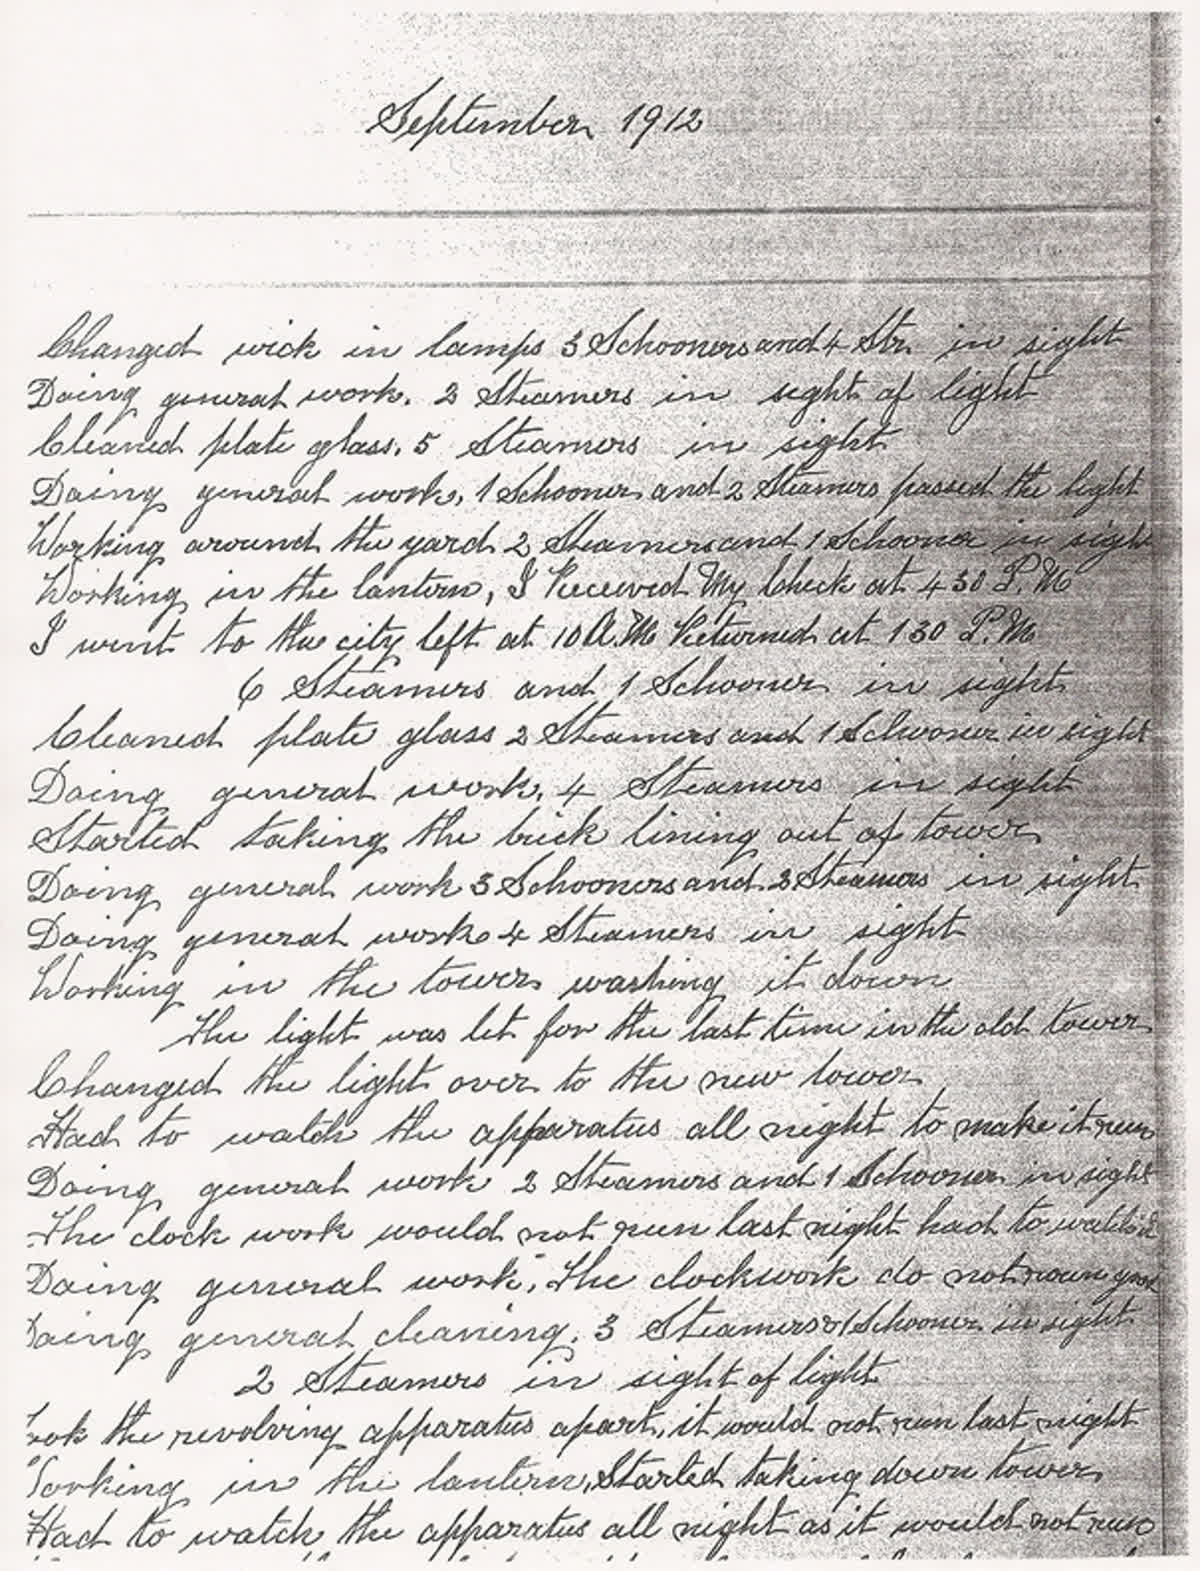 September 1912
Changed wick in lamps 3 Schooners and 4 Str. in sight
Doing general work. 2 Steamers in sight of light
Cleaned plate glass. 5 Steamers in sight
Doing general work, 1 Schooner and 2 Steamers passed the light
Working around the yard 2 Steamers and 1 Schooner in sight
Working in the lantern, I Received My Check at 4 30 P.M
I went to the city left at 10 A.M Returned at 1 30 P.M
6 Steamers and 1 Schooner in sight
Cleaned plate glass 2 Steamers and 1 Schooner in sight
Doing general work. 4 Steamers in sight
Started taking the brick lining out of tower
Doing general work 3 Schooners and 3 Steamers in sight
Doing general work 4 Steamers in sight
Working in the tower washing it down
The light was let for the last time in the old tower
Changed the light over to the new tower
Had to watch the apparatus all night to make it run
Doing general work 2 Steamers and 1 Schooner in sight
The clock work would not run last night had to watch it
Doing general work. The clockwork do not run good
Doing general cleaning. 3 Steamers & 1 Schooner in sight
2 Steamers in sight of light
Took the revolving apparatus apart, it would not run last night
Working in the lantern, Started taking down tower
Had to watch the apparatus all night as it would not run